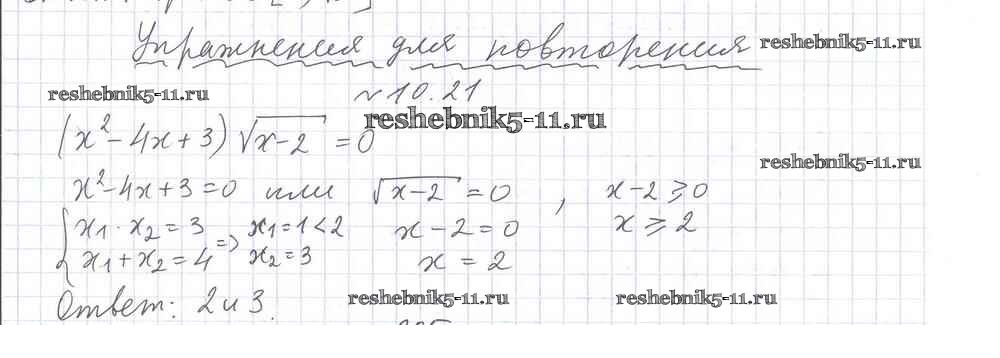 Упражнения для повторения
reshebnik5-11.ru
reshebnik5-11.ru
№10.21
reshebnik5-11.ru
(x²-4x+3)√x-2 = 0
reshebnik5-11.ru
x²-4x+3=0 или √x-2 = 0, x-2⩾0
{x₁·x₂=3 => x₁=1<2 x-2=0 x⩾2
x₁+x₂=4 x₂=3 x=2
Ответ: 2 и 3.
reshebnik5-11.ru
reshebnik5-11.ru